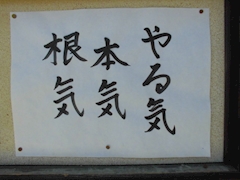 やる気
本気
根気